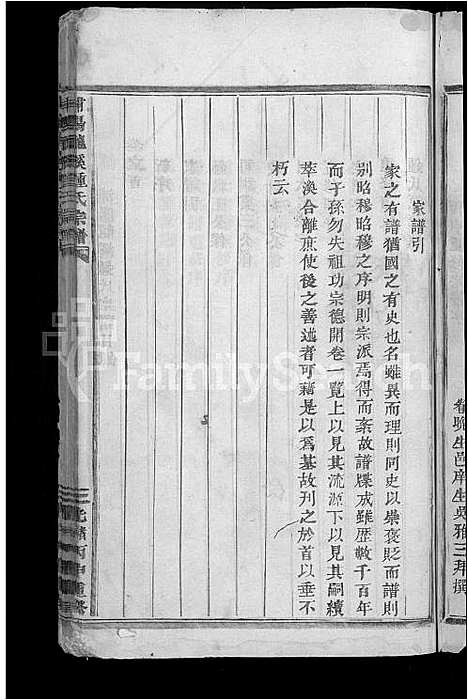 眷晚生邑庠生吳雅三拜撰
家譜引
家之有譜猶國之有史也名雖異而理則同史以崇褒貶而譜則
别昭穆昭穆之序明則宗派焉得而紊故譜牒成雖歷數千百年
而子孫勿失祖功宗德開卷一覽上以見其流源下以見其嗣續
萃渙合離庶使後之善述者可藉是以爲基故刊之於首以垂不
朽云
鍾氏宗譜
光緒丙申重修
FamilySearch